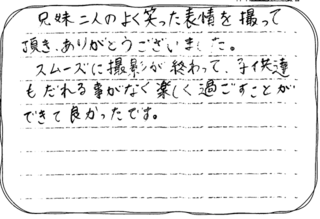 兄妹二人のよく笑った表情を撮って
頂き、ありがとうございました。
スムーズに撮影が終わって、子供達
もだれる事がなく楽しく過ごすことが
できて良かったです。